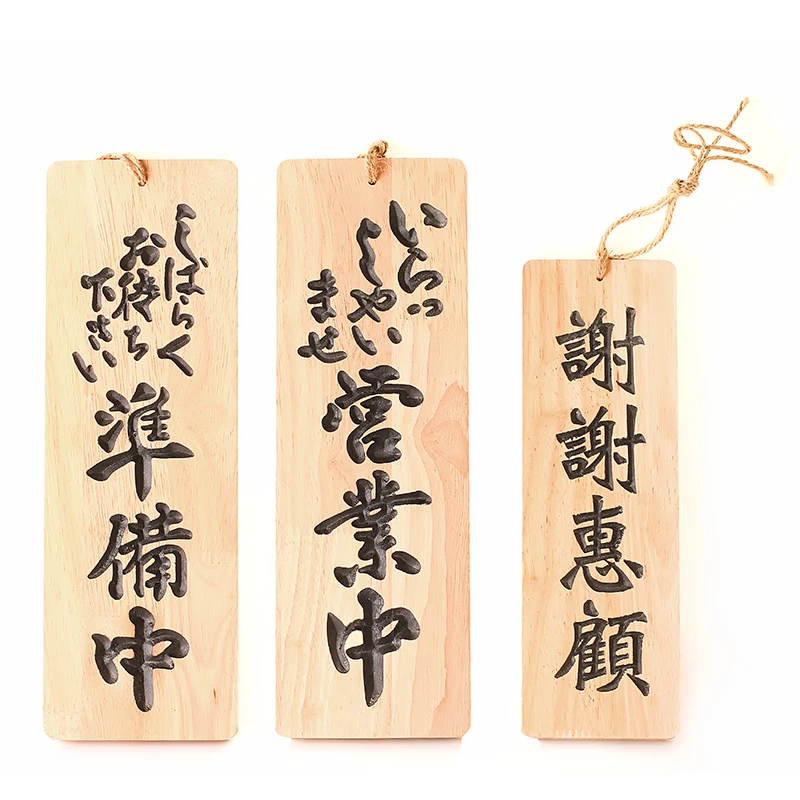 しばらく
お待ち
下さい
準備中
いらっ
しゃい
ませ
営業中
謝謝惠顧